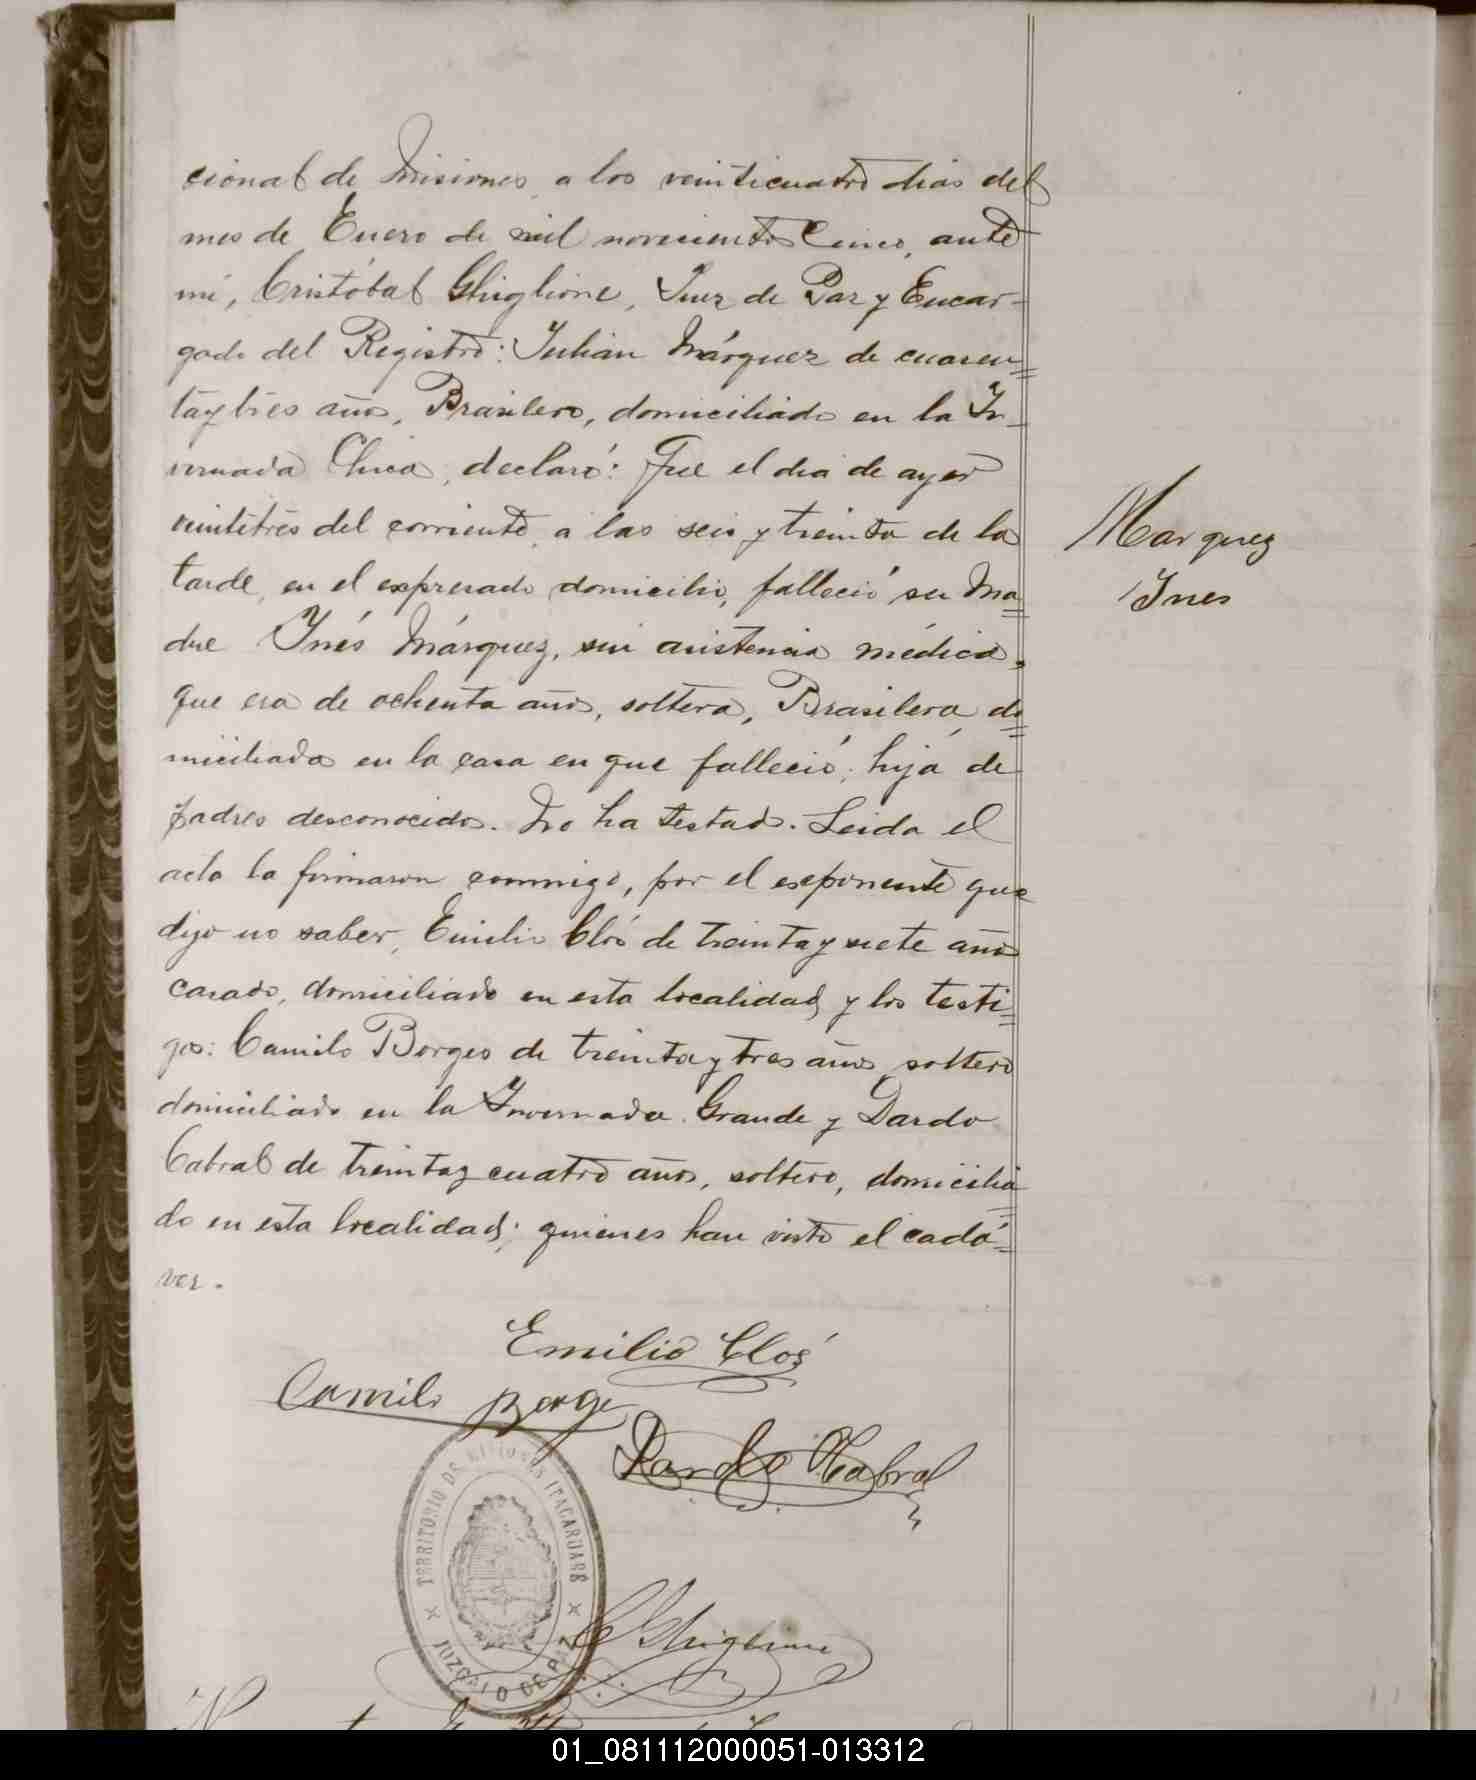 cional de Misiones, a los veinticuatro dias del
mes de Enero de mil novecientos Cinco, ante
mi, Cristóbal Ghiglione, Juez de Paz y Encar-
gado del Registro: Julian Márquez de cuaren=
taytres años, Brasilero, domiciliado en la In-
vernada Chica, declaró: Que el dia de ayer
veintitrés del corriente, a las seis y treinta de la
tarde, en el expresado domicilio, falleció su Ma=
dre Inés Márquez, sin asistencia médica,
que era de ochenta años, soltera, Brasilera, do=
miciliada en la casa en que falleció; hija de
padres desconocidos. No ha testado. Leida el
acta la firmaron conmigo, por el exponente que
dijo no saber, Emilio Clós de treinta y siete años
casado, domiciliado en esta localidad y los testi=
gos: Camilo Borges de treinta y tres años, soltero
domiciliado en la Invernada Grande y Dardo
Cabral de treinta y cuatro años, soltero, domicilia=
do en esta localidad; quienes han visto el cadá=
ver.
Marquez
Ines
Emilio Clós
Camilo Borge
Dardo Cabral
TERRITORIO DE MISIONES ITACARUARÉ
JUZGADO DE PAZ
C Ghiglione
01_081112000051-013312